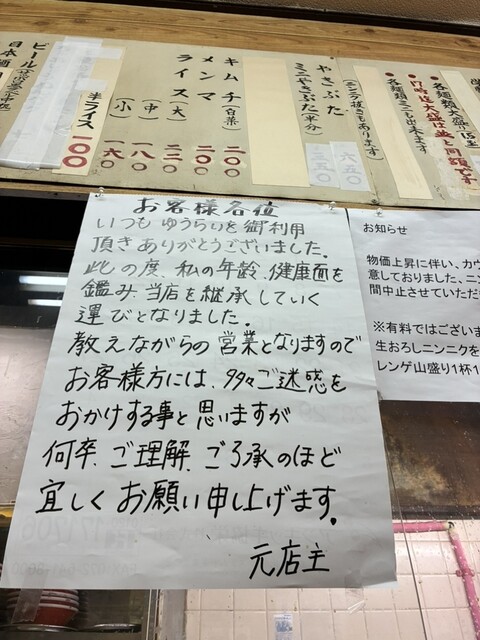 ●各麺類大盛り
●17時迄大盛は並と同額です
各麺類ミニも出来ます
やきぶた
六五〇
ミニやきぶた(半分)
三三〇
キムチ(白菜) 二〇〇
メンマ 二〇〇
ライス(大) 二三〇
(中) 一八〇
(小) 一六〇
半ライス 一〇〇
ビール
日本酒
お客様各位
いつもゆうらいを御利用
頂きありがとうございました。
此の度、私の年齢、健康面を
鑑み、当店を継承していく
運びとなりました。
教えながらの営業となりますので
お客様方には、多々ご迷惑を
おかけする事と思いますが
何卒、ご理解、ご了承のほど
宜しくお願い申し上げます。
元店主
お知らせ
物価上昇に伴い、カウ
意しておりました、ニン
間中止させていただ
※有料ではございま
生おろしニンニクを
レンゲ山盛り1杯1